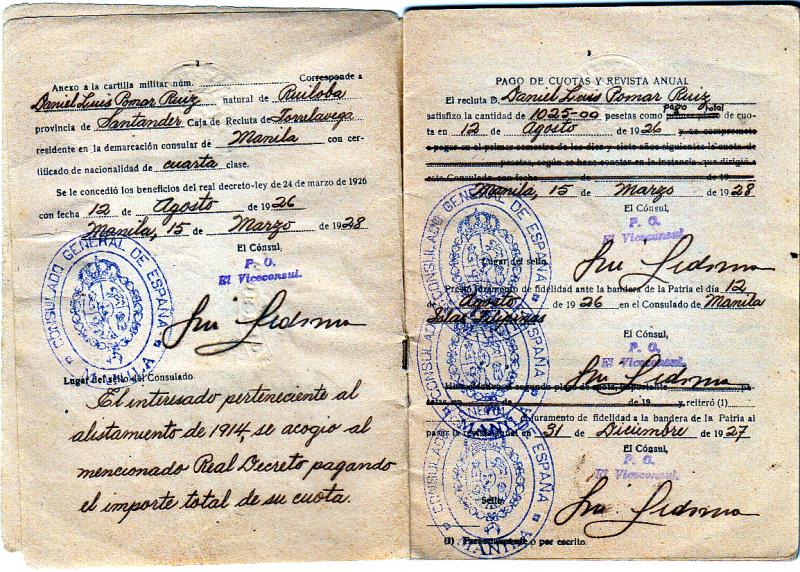 2
Anexo a la cartilla militar núm. Corresponde a
Daniel Luis Pomar Ruiz natural de Ruiloba
provincia de Santander Caja de Recluta de Torrelavega
residente en la demarcación consular de Manila con cer-
tificado de nacionalidad de cuarta clase.
Se le concedió los beneficios del real decreto-ley de 24 de marzo de 1926
con fecha 12 de Agosto de 1926
Manila, 15 de Marzo de 1928
El Cónsul,
P. O.
El Viceconsul.
CONSULADO GENERAL DE ESPAÑA
MANILA
Lugar del sello del Consulado
El interesado perteneciente al
alistamiento de 1914, se acogio al
mencionado Real Decreto pagando
el importe total de su cuota.
3
PAGO DE CUOTAS Y REVISTA ANUAL
El recluta D. Daniel Luis Pomar Ruiz
pago total
satisfizo la cantidad de 1025-00 pesetas como primer plazo de cuo-
ta en 12 de Agosto de 1926 y se compromete
a pagar en el primer semestre de los diez y siete años siguientes la cuota de
pesetas, según se hace constar en la instancia que dirigió
este Consulado con fecha de de 19
Manila, 15 de Marzo de 1928
El Cónsul,
P. O.
El Viceconsul.
CONSULADO GENERAL DE ESPAÑA
Lugar del sello
Prestó juramento de fidelidad ante la bandera de la Patria el día 12
de Agosto de 1926 en el Consulado de Manila
Islas Filipinas
El Cónsul,
P. O.
El Viceconsul.
CONSULADO GENERAL DE ESPAÑA
MANILA
segundo plazo de cuota, importante pe-
setas en de de 19 y reiteró (1)
juramento de fidelidad a la bandera de la Patria al
pasar la revista anual en 31 de Diciembre de 1927
El Cónsul,
P. O.
El Viceconsul.
CONSULADO GENERAL DE ESPAÑA
MANILA
Sello
(1) Personalmente o por escrito.